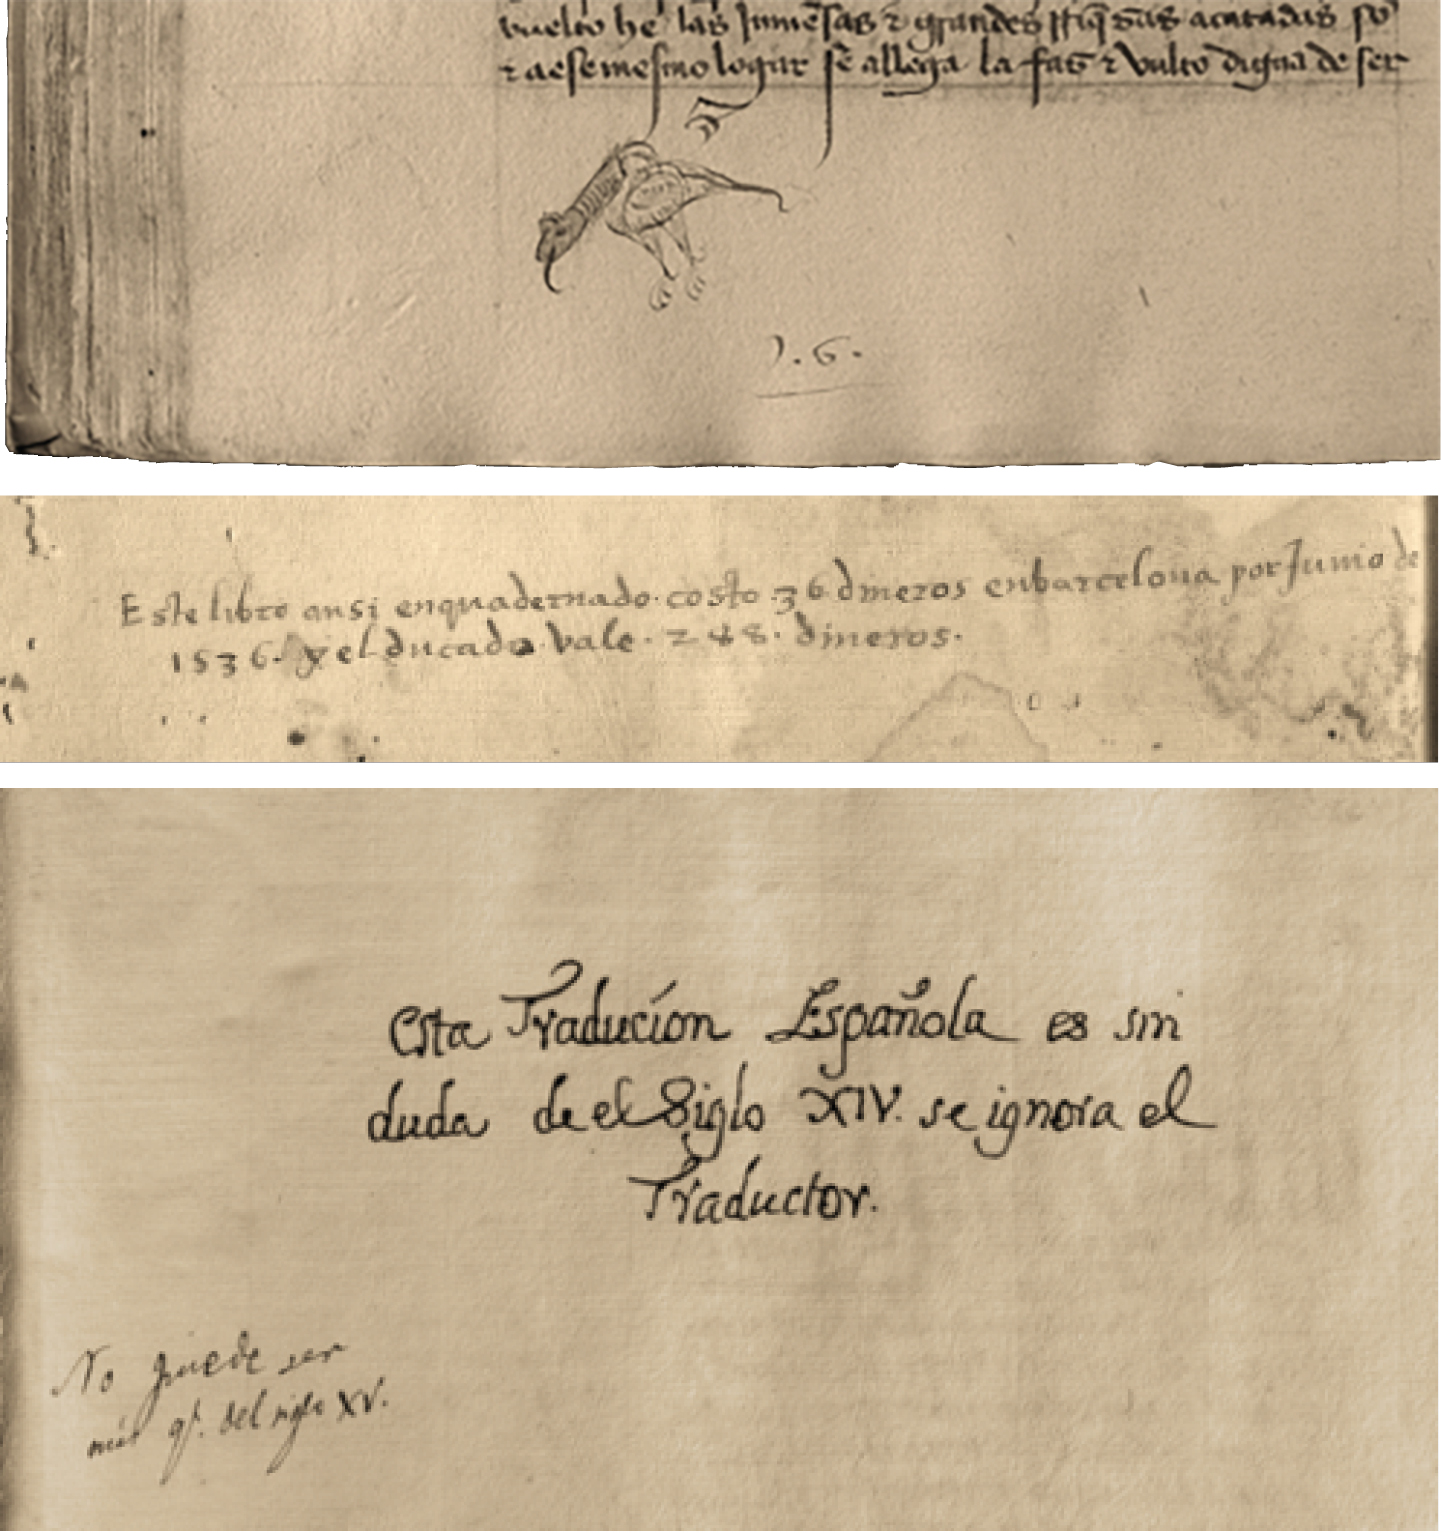 vuelto he las Jnmēsas ⁊ grandes acatadas so
⁊ aesemesmo logar se allega la faς ⁊ vulto digna de ser
J. 6.
Este libro ansi enquadernado. costo .36 dineros enbarcelona por Junio de
1536. y el ducado. vale. 288. dineros.
Esta Traducíon Española es sin
duda de el Siglo XIV. se ignora el
Traductor.
No puede ser
más q.e del siglo XV.